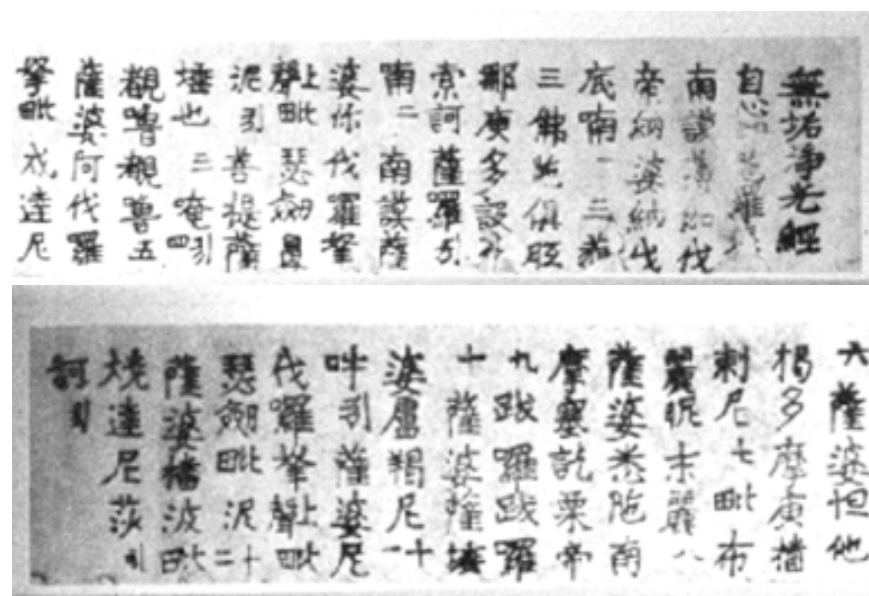 無垢淨光經
自心印陀羅尼
南謨薄伽伐
帝納婆納伐
底喃一三藐
三佛陁俱胝
那庾多設多
索訶薩羅引
喃二南謨薩
婆你伐囉拏
上聲毗瑟劒鼻
泥引菩提薩
埵也三唵四引
覩嚕覩嚕五
薩婆阿伐囉
拏毗戍達尼
六薩婆怛他
揭多摩庾播
剌尼七毗布
麗昵末麗八
薩婆悉陁南
摩塞訖栗帝
九跋囉跋囉
十薩婆薩埵
婆盧羯尼十一
吽引薩婆尼
伐囉拏上聲毗
瑟劒毗泥十二
薩婆播波毗
燒達尼莎引
訶引